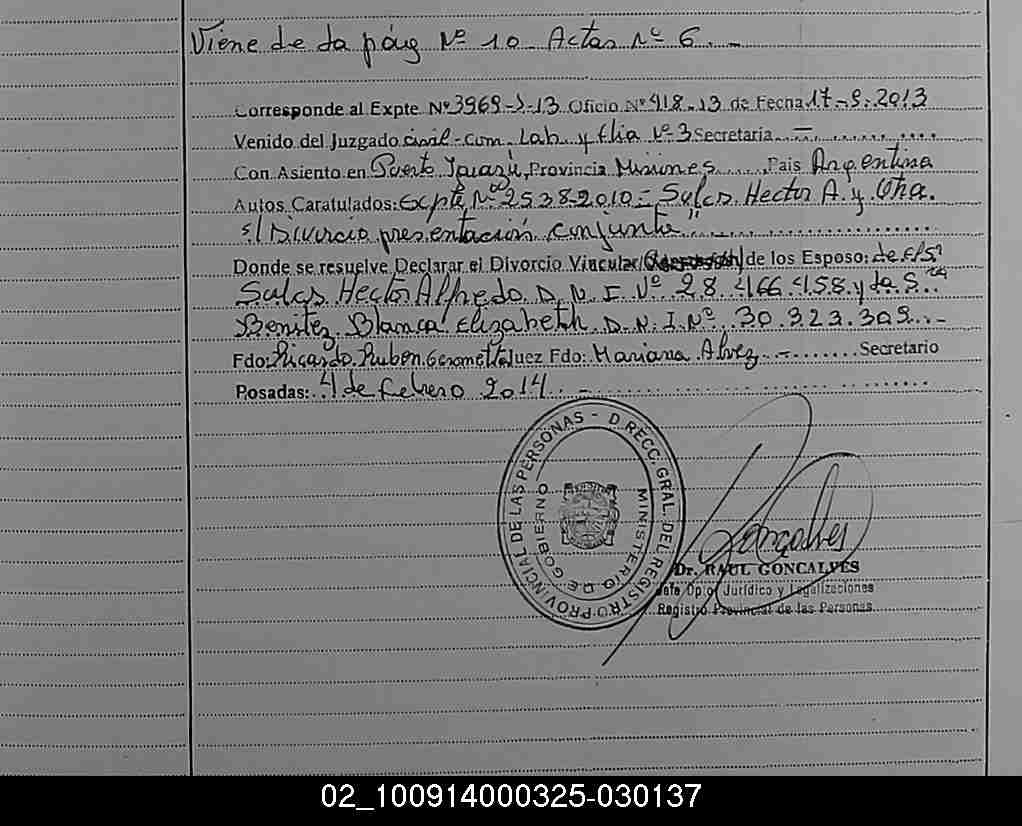 Viene de la pág Nº 10 - Actas Nº 6. -
Corresponde al Expte Nº 3969-S-13 Oficio Nº 418-13 de Fecha 17-9-2013
Venido del Juzgado civil-com. Lab. y flia Nº 3 Secretaria -
Con Asiento en Puerto Iguazú, Provincia Misiones Pais Argentina
Autos Caratulados: Expte Nº 2538-2010 = Salas Hector A. y Otra.
s/ Divorcio presentación conjunta" -
Donde se resuelve Declarar el Divorcio Vincular de los Esposo: de el Sr
Salas Hector Alfredo D.N.I. Nº 28.466.458 y la Sra
Benitez Blanca Elizabeth D.N.I. Nº 30.323.309. -
Fdo: Ricardo Ruben Juez Fdo: Mariana Alvez. - Secretario
Posadas: 4 de febrero 2014. -
DIRECC. GRAL. DEL REGISTRO PROVINCIAL DE LAS PERSONAS -
MINISTERIO DE GOBIERNO
Goncalves
Dr. RAUL GONCALVES
Jefe Dpto. Jurídico y Legalizaciones
Registro Provincial de las Personas
02_100914000325-030137